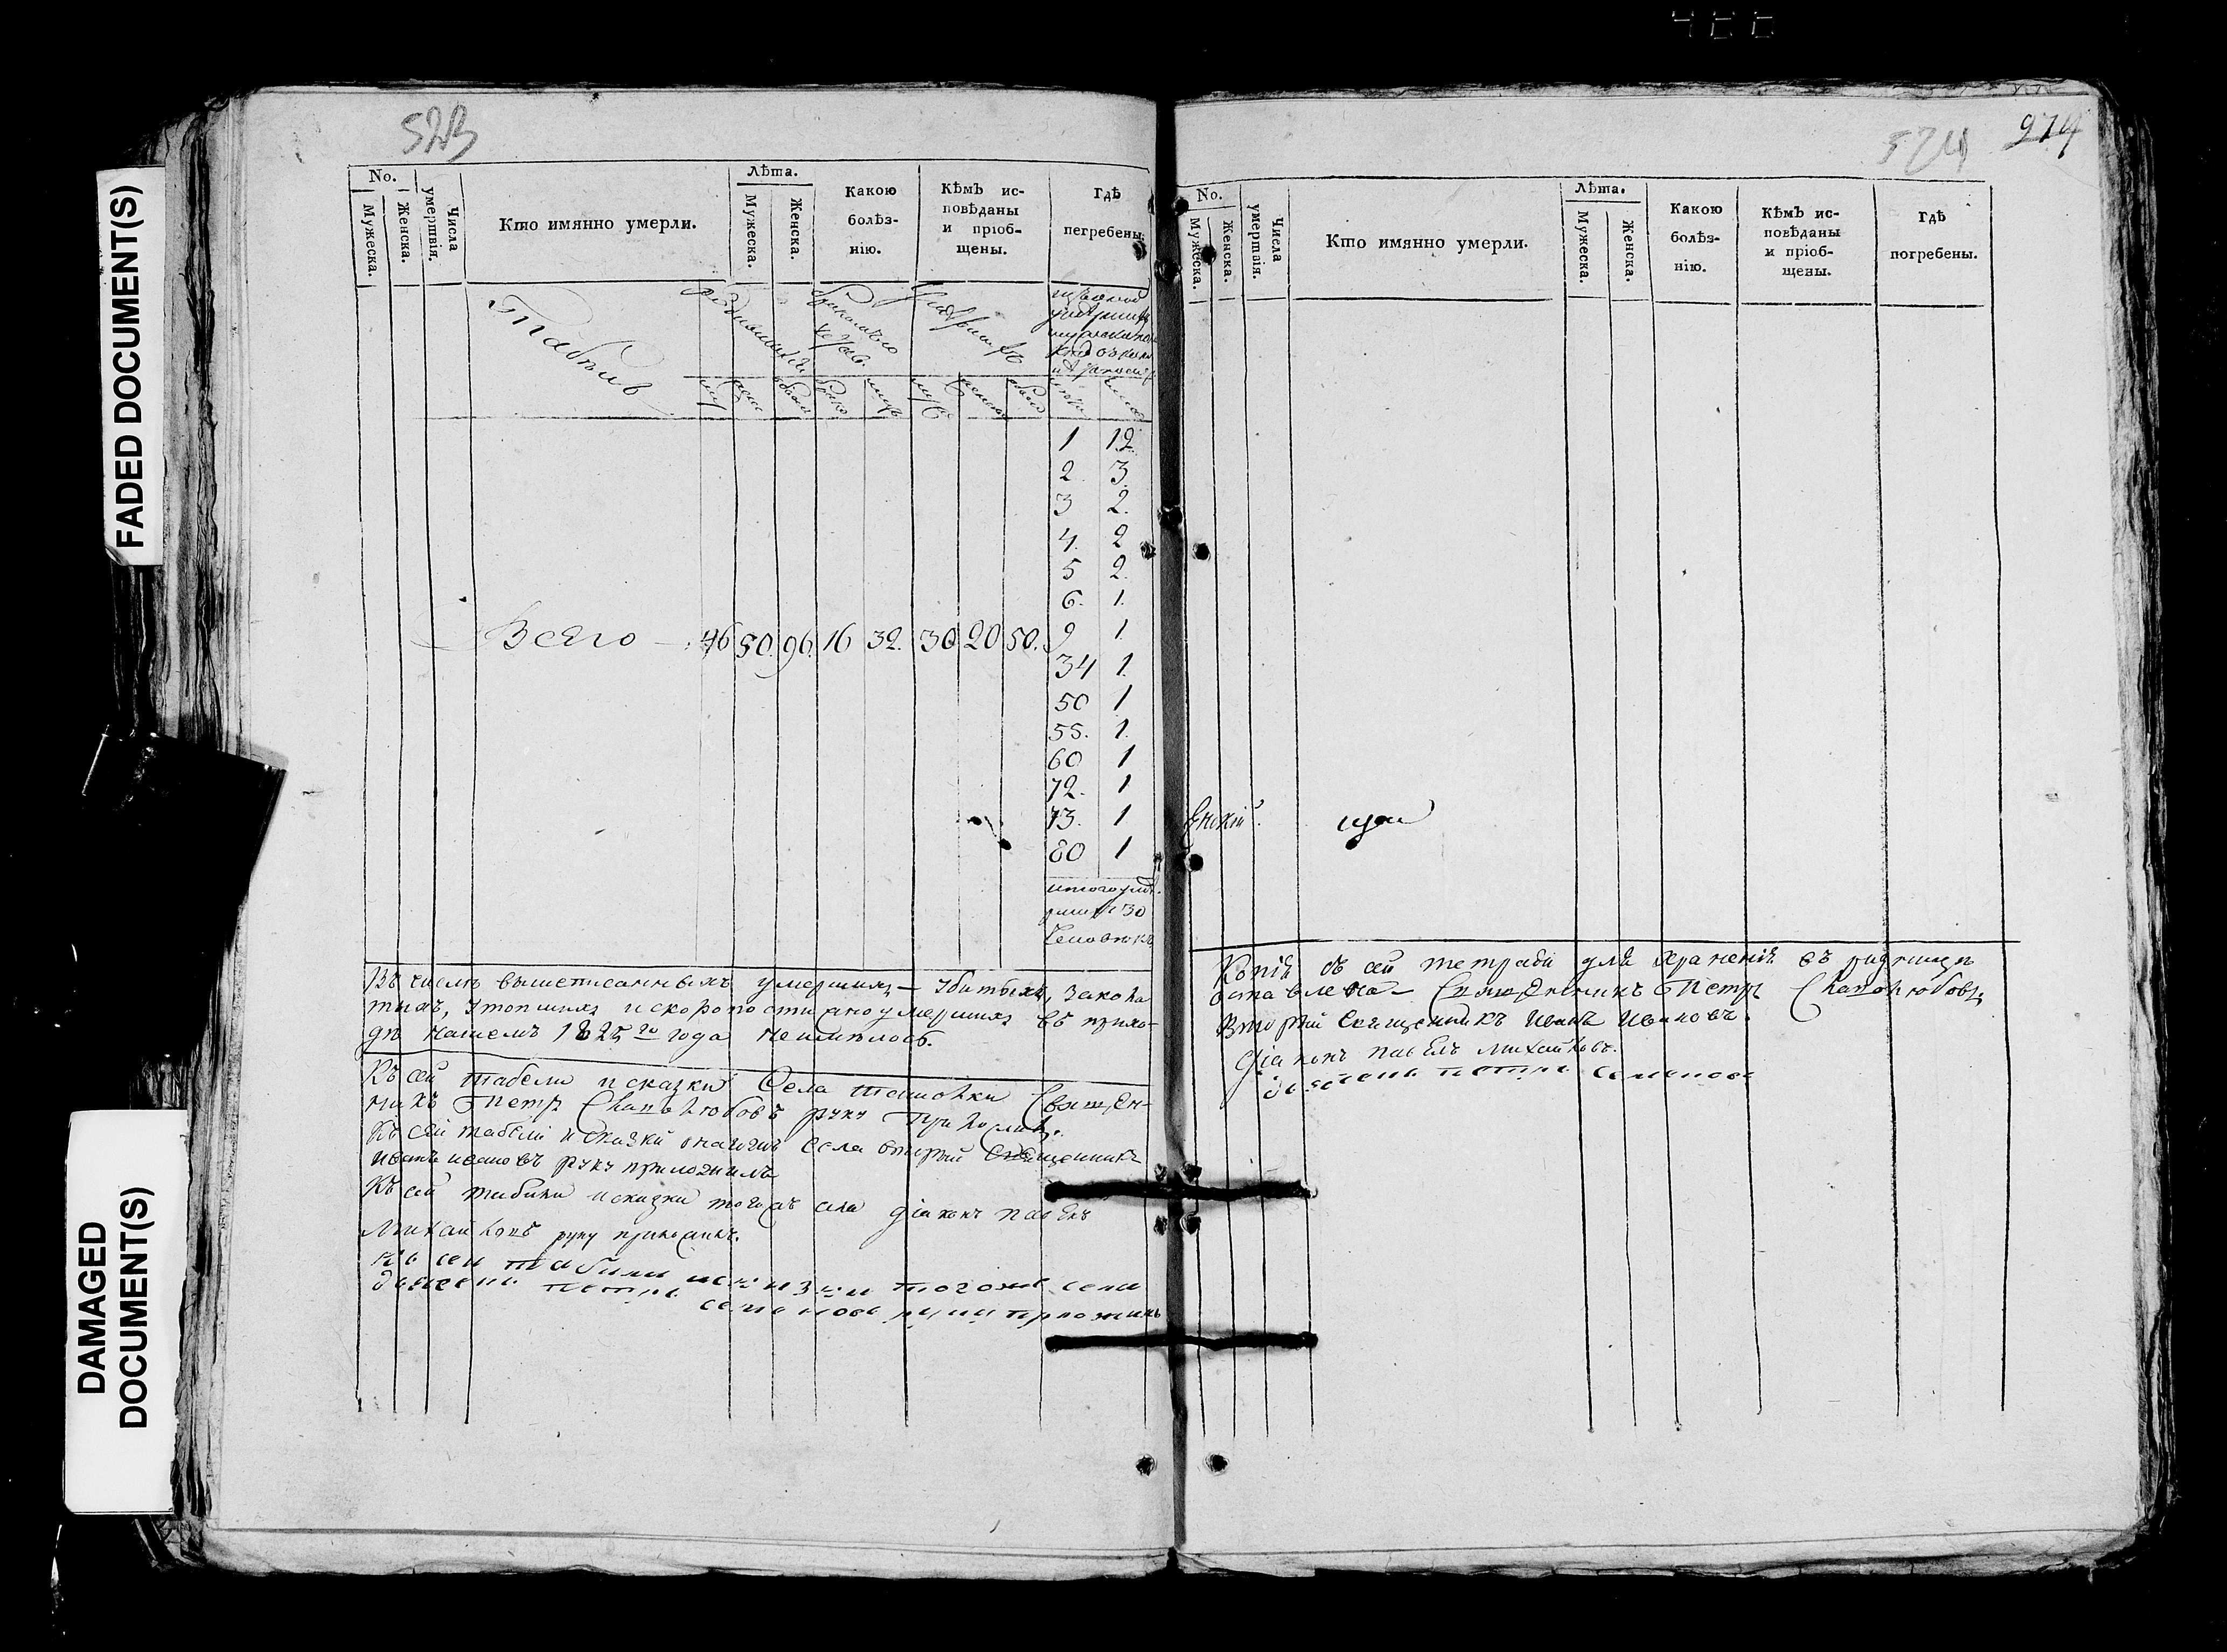 FADED DOCUMENT(S)
DAMAGED
DOCUMENT(S)
523
No.
Мужеска.
Женска.
Числа
умертвія.
Кто имянно умерли.
Лѣта.
Мужеска.
Женска.
Какою
болѣз-
нію.
Кѣмъ ис-
повѣданы
и пріоб-
щены.
Гдѣ
пегребены.
1 12
2 3
3 2.
4. 2
5 2.
6. 1.
9 1.
34 1.
50 1
55. 1.
60 1
72. 1
73. 1
80 1
Всего 46 50. 96. 16 32. 30 20 50.
30
Въ числѣ вышеписанныхъ умершихъ – убитыхъ,
утопшихъ и скоропостижно умершихъ въ прихо-
дѣ нашемъ 1825го года неимѣлось.
Къ сей табели и сказки Села Свящ,ен-
никъ Петръ руку Приложилъ.
Къ сей табели и сказки села вторый Священникъ
Иванъ Ивановъ руку приложилъ
Къ сей табели и сказки тогожъ села діаконъ павелъ
Михайловъ руку приложилъ.
Къ сей табели и сказки тогоже села
дьячекъ петръ
семеновъ руку приложилъ
974
574
No.
Мужеска.
Женска.
Числа
умертвія.
Кто имянно умерли.
Лѣта.
Мужеска.
Женска.
Какою
болѣз-
нію.
Кѣмъ ис-
повѣданы
и пріоб-
щены.
Гдѣ
погребены.
Копія съ сей тетради для храненія въ ризницѣ
оставлена – Свящ,енникъ Петръ
Вторый Священникъ Иванъ Ивановъ.
Діаконъ павелъ Михайловъ.
дьячекъ петръ семеновъ